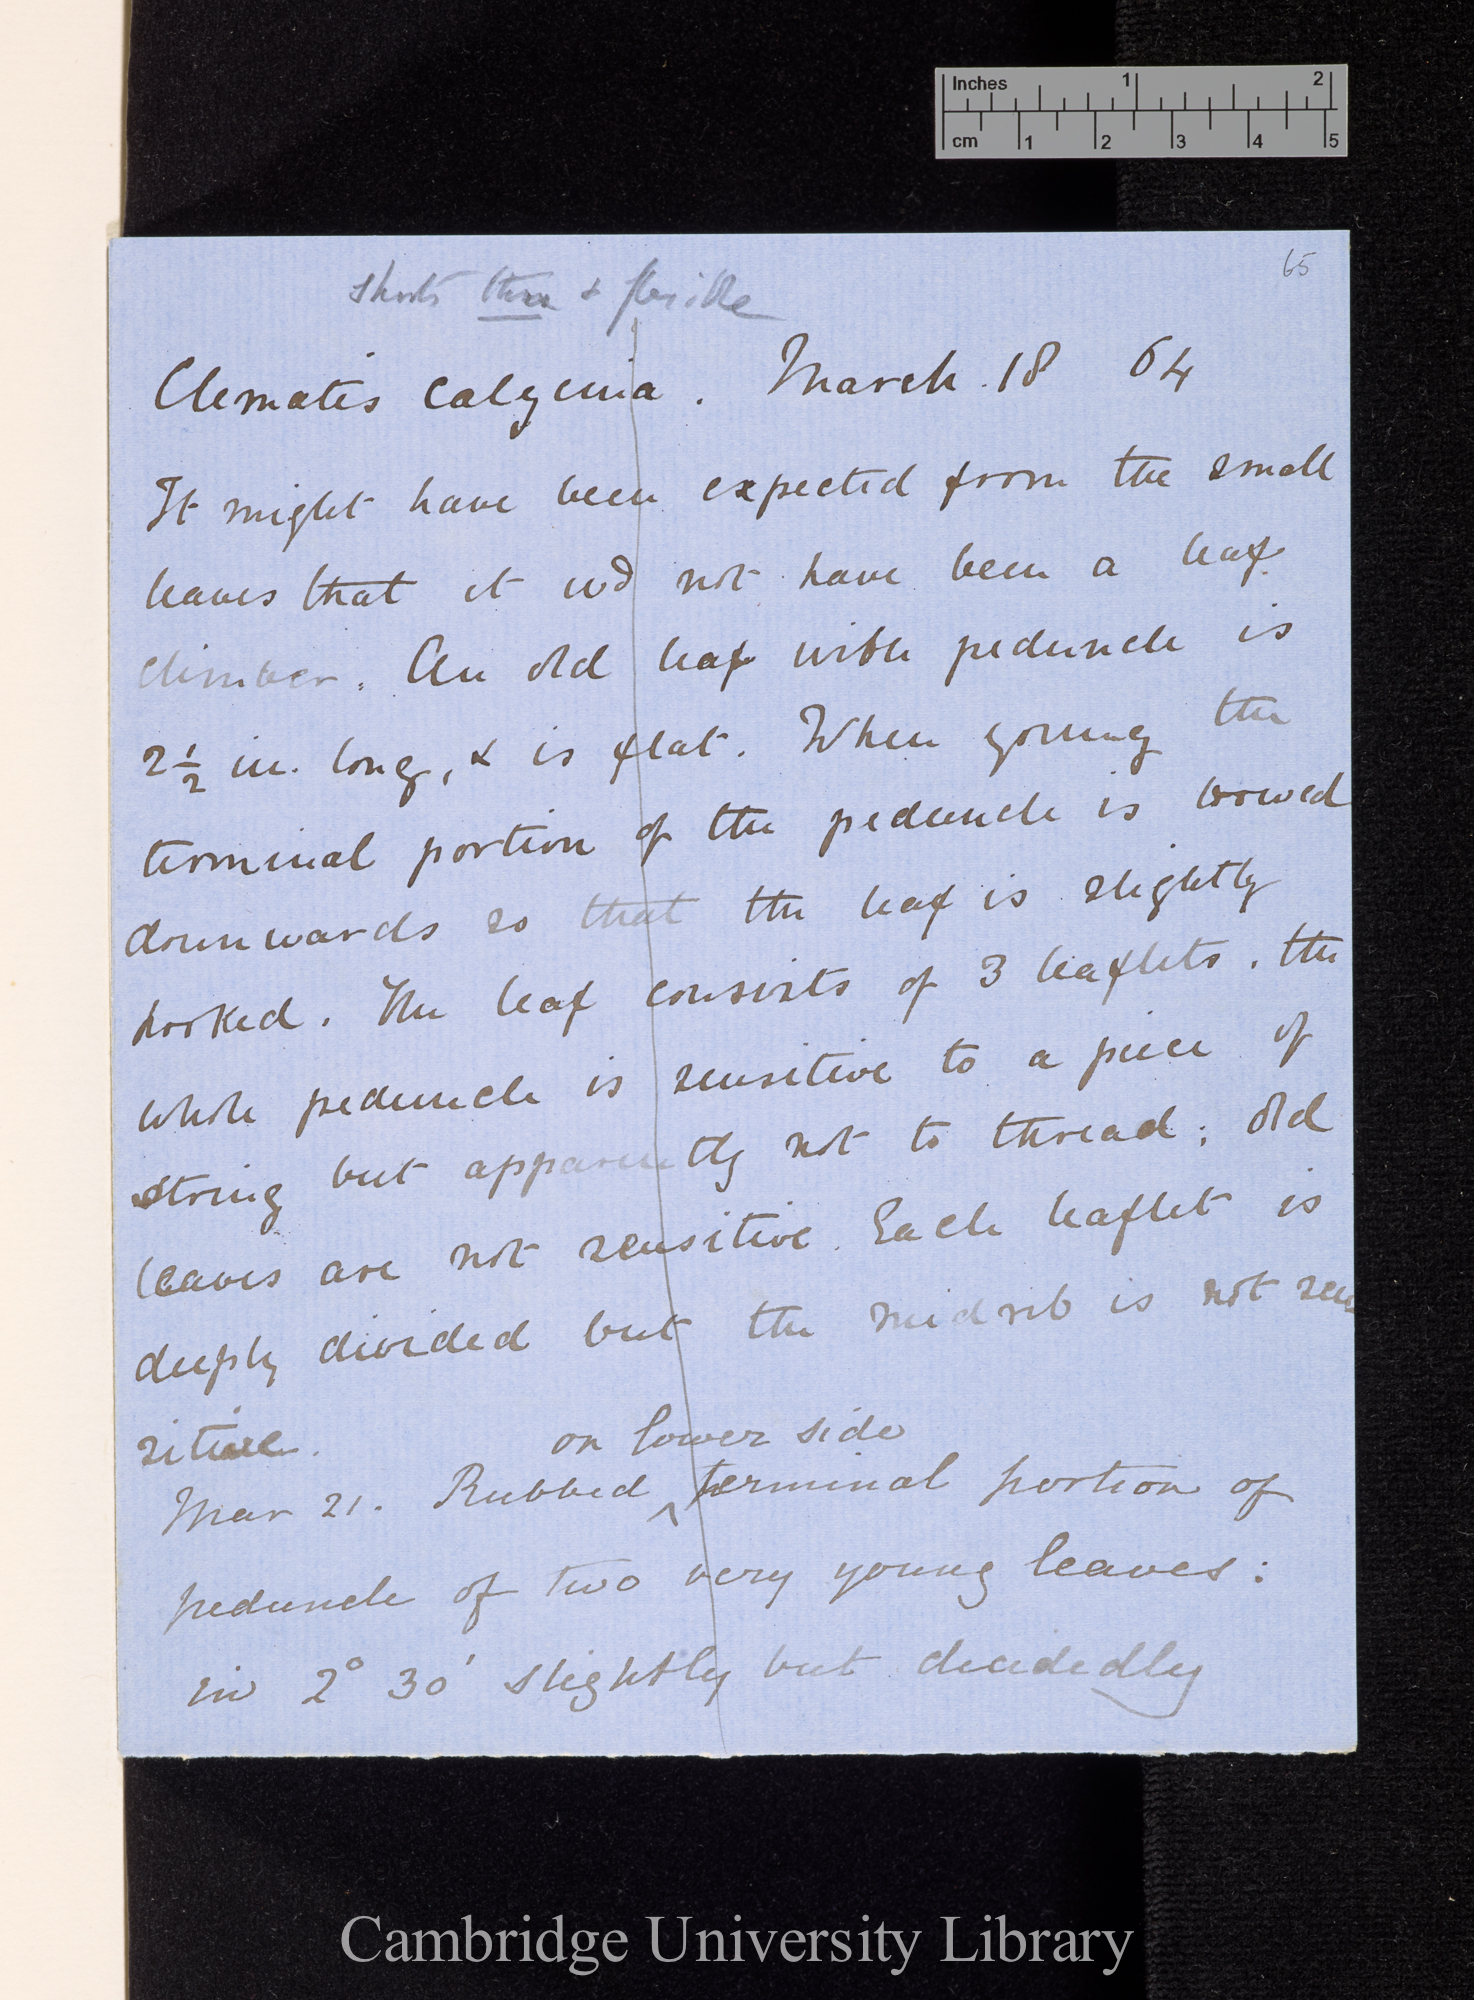 Inches 1 2
cm 1 2 3 4 5
65
shoots thin & flexible
Clematis calycina. March. 18 64
It might have been expected from the small
leaves that it wd not have been a leaf
climber. An old leaf with peduncle is
2½ in. long, & is flat. When young the
terminal portion of the peduncle is bowed
downwards so that the leaf is slightly
hooked. The leaf consists of 3 leaflets. the
whole peduncle is sensitive to a piece of
string but apparently not to thread; old
leaves are not sensitive. Each leaflet is
deeply divided but the midrib is not sen
sitive.
on lower side
Mar 21. Rubbed ^ terminal portion of
peduncle of two very young leaves:
in 2° 30' slightly but decidedly
Cambridge University Library